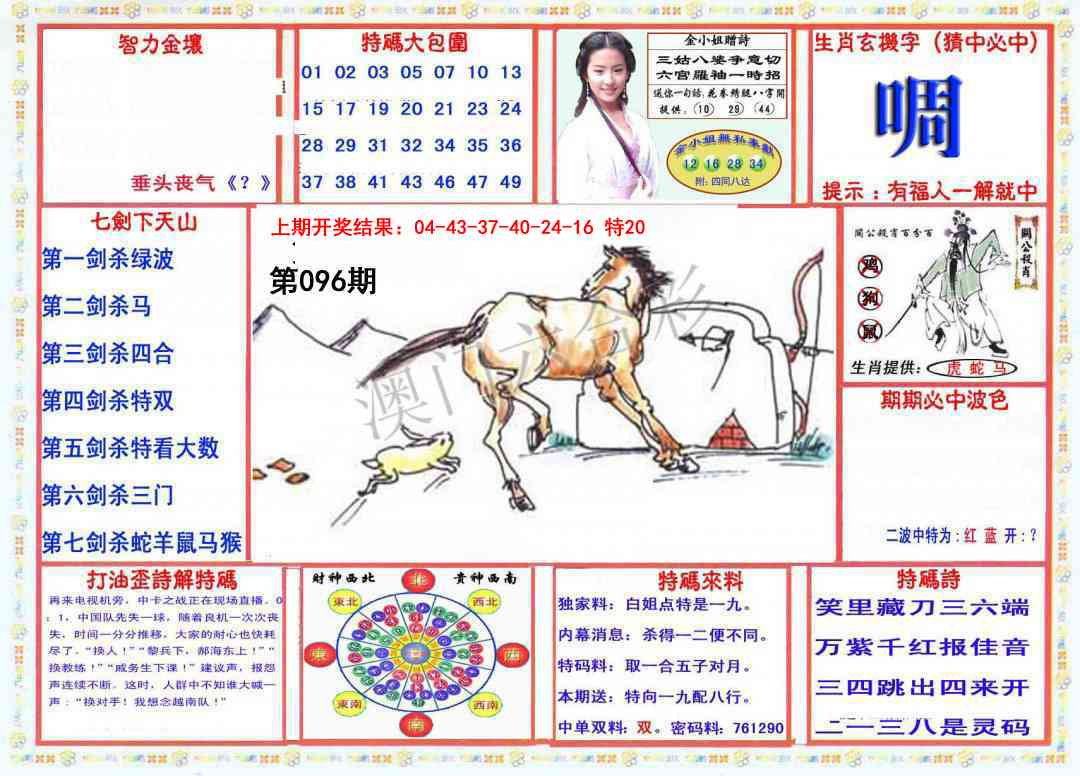 智力金壤
垂头丧气《？》
特碼大包圍
01 02 03 05 07 10 13
15 17 19 20 21 23 24
28 29 31 32 34 35 36
37 38 41 43 46 47 49
金小姐贈詩
三姑八婆手意切
六宫羅袖一時招
提供：(10) 29 (44)
金小姐無私奉獻
12 16 28 34
附：四同八达
生肖玄機字（猜中必中）
啁
提示：有福人一解就中
七劍下天山
第一剑杀绿波
第二剑杀马
第三剑杀四合
第四剑杀特双
第五剑杀特看大数
第六剑杀三门
第七剑杀蛇羊鼠马猴
上期开奖结果：04-43-37-40-24-16 特20
第096期
澳门六合彩
關公殺肖百分百
關公殺肖
鸡
狗
鼠
生肖提供：虎 蛇 马
期期必中波色
二波中特为：红 蓝 开：？
打油歪詩解特碼
再来电视机旁，中卡之战正在现场直播。0
：1，中国队先失一球，随着良机一次次丧
失，时间一分分推移，大家的耐心也快耗
尽了。“换人！”“黎兵下，郝海东上！”“
换教练！”“戚务生下课！”建议声，报怨
声连续不断。这时，人群中不知谁大喊一
声：“换对手！我想念越南队！”
財神西北 貴神西南
北
東北 西北
東 西
東南 西南
南
特碼來料
独家料：白姐点特是一九。
内幕消息：杀得一二便不同。
特码料：取一合五子对月。
本期送：特向一九配八行。
中单双料：双。密码料：761290
特碼詩
笑里藏刀三六端
万紫千红报佳音
三四跳出四来开
二一三八是灵码